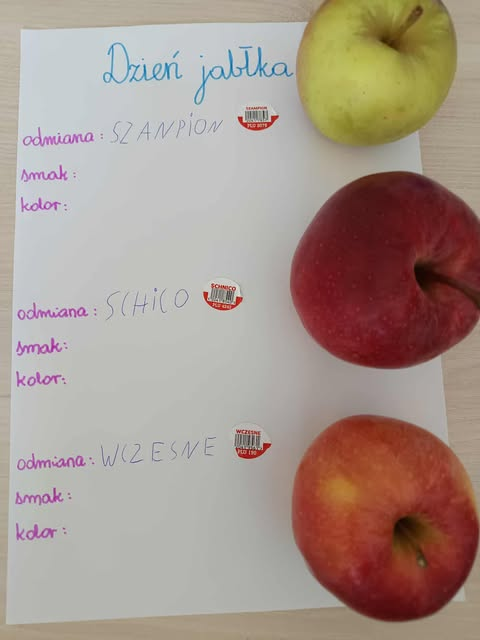 Dzień jabłka
odmiana: SZANPION
SZAMPION
PLU 3076
smak:
kolor:
odmiana: SCHICO
SCHNICO
smak:
kolor:
odmiana: WCZESNE
WCZESNE
PLU 150
smak:
kolor: